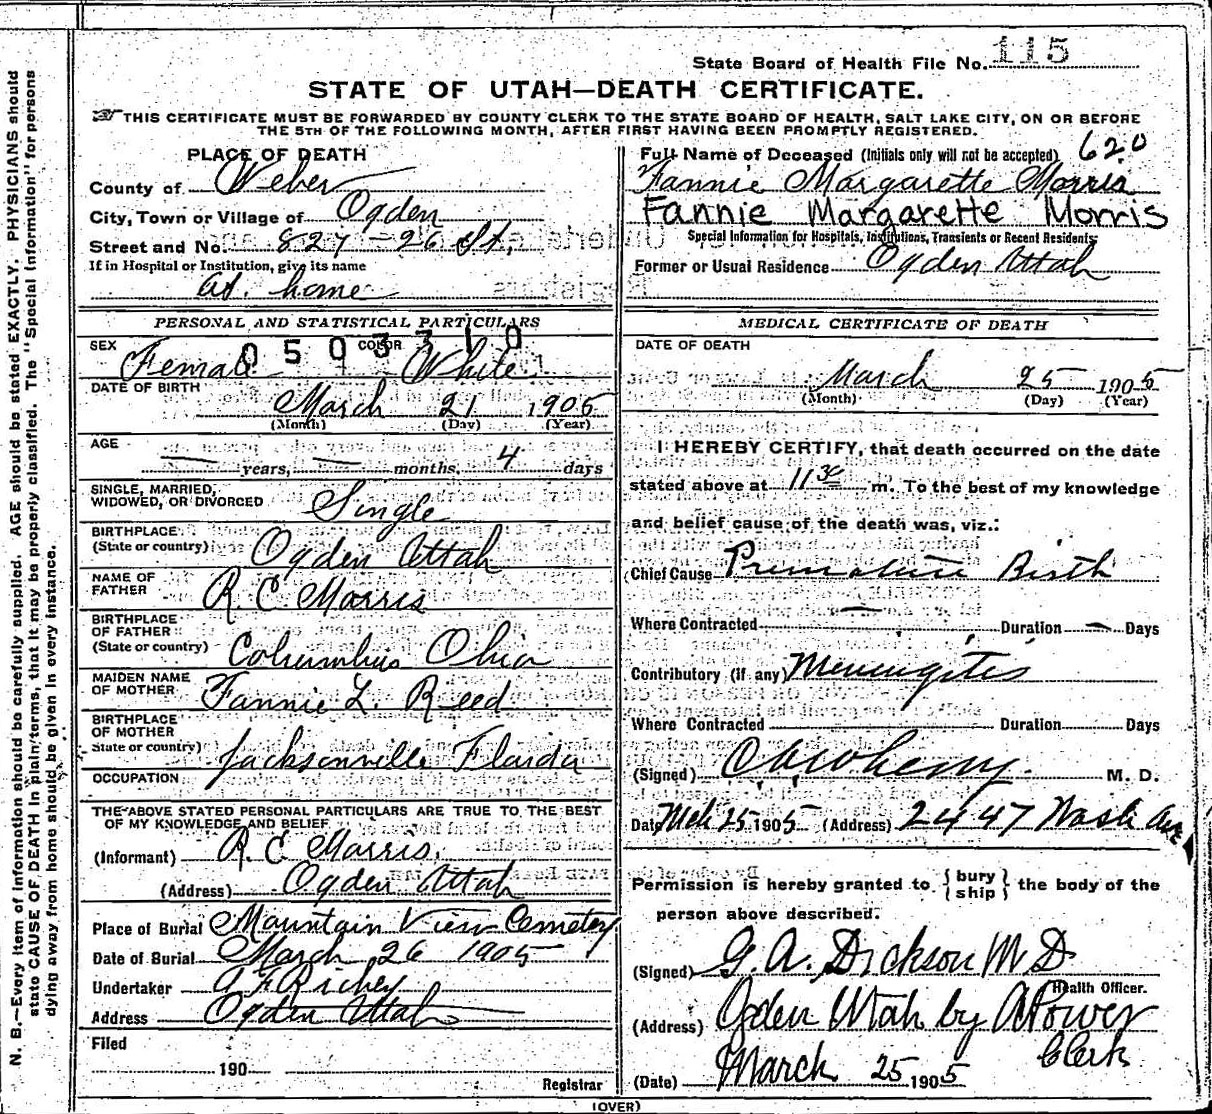 State Board of Health File No. 115
STATE OF UTAH—DEATH CERTIFICATE.
THIS CERTIFICATE MUST BE FORWARDED BY COUNTY CLERK TO THE STATE BOARD OF HEALTH, SALT LAKE CITY, ON OR BEFORE
THE 5TH OF THE FOLLOWING MONTH, AFTER FIRST HAVING BEEN PROMPTLY REGISTERED.
PLACE OF DEATH
County of Weber
City, Town or Village of Ogden
Street and No. 827 - 26 St.
If in Hospital or Institution, give its name
at home
620
Full Name of Deceased (Initials only will not be accepted)
Fannie Margarette Morris
Fannie Margarette Morris
Special Information for Hospitals, Institutions, Transients or Recent Residents
Former or Usual Residence Ogden Utah
PERSONAL AND STATISTICAL PARTICULARS
0503310
SEX Female COLOR White
DATE OF BIRTH
March 21 1905
(Month) (Day) (Year)
AGE
— years, — months, 4 days
SINGLE, MARRIED,
WIDOWED, OR DIVORCED Single
BIRTHPLACE
(State or country) Ogden Utah
NAME OF
FATHER R. C. Morris
BIRTHPLACE
OF FATHER
(State or country) Columbus Ohio
MAIDEN NAME
OF MOTHER Fannie L. Reed
BIRTHPLACE
OF MOTHER
State or country) Jacksonville Florida
OCCUPATION
THE ABOVE STATED PERSONAL PARTICULARS ARE TRUE TO THE BEST
OF MY KNOWLEDGE AND BELIEF
(Informant) R. C. Morris.
(Address) Ogden Utah
Place of Burial Mountain View Cemetery
Date of Burial March 26 1905
Undertaker A F Richey
Address Ogden Utah
Filed
190
Registrar
MEDICAL CERTIFICATE OF DEATH
DATE OF DEATH
March 25 1905
(Month) (Day) (Year)
I HEREBY CERTIFY, that death occurred on the date
stated above at 11 30 m. To the best of my knowledge
and belief cause of the death was, viz.:
Chief Cause Premature Birth
Where Contracted — Duration — Days
Contributory (if any) Meningitis
Where Contracted Duration Days
(Signed) M. D.
Date Mch 25 1905 (Address) 2447 Wash Ave
Permission is hereby granted to { bury ship } the body of the
person above described.
(Signed) G. A. Dickson M D
Health Officer.
(Address) Ogden Utah by A Power
Clerk
(Date) March 25 1905
(OVER)
N. B.—Every item of information should be carefully supplied. AGE should be stated EXACTLY. PHYSICIANS should
state CAUSE OF DEATH in plain terms, that it may be properly classified. The "Special Information" for persons
dying away from home should be given in every instance.